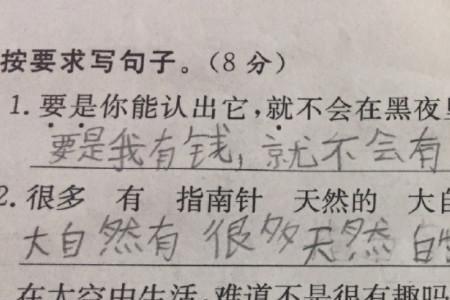 按要求写句子。(8分)
1.要是你能认出它,就不会在黑夜
要是我有钱,就不会有
2.很多 有 指南针 天然的 大自
大自然有很多天然
在太空中生活,难道不是很有趣吗